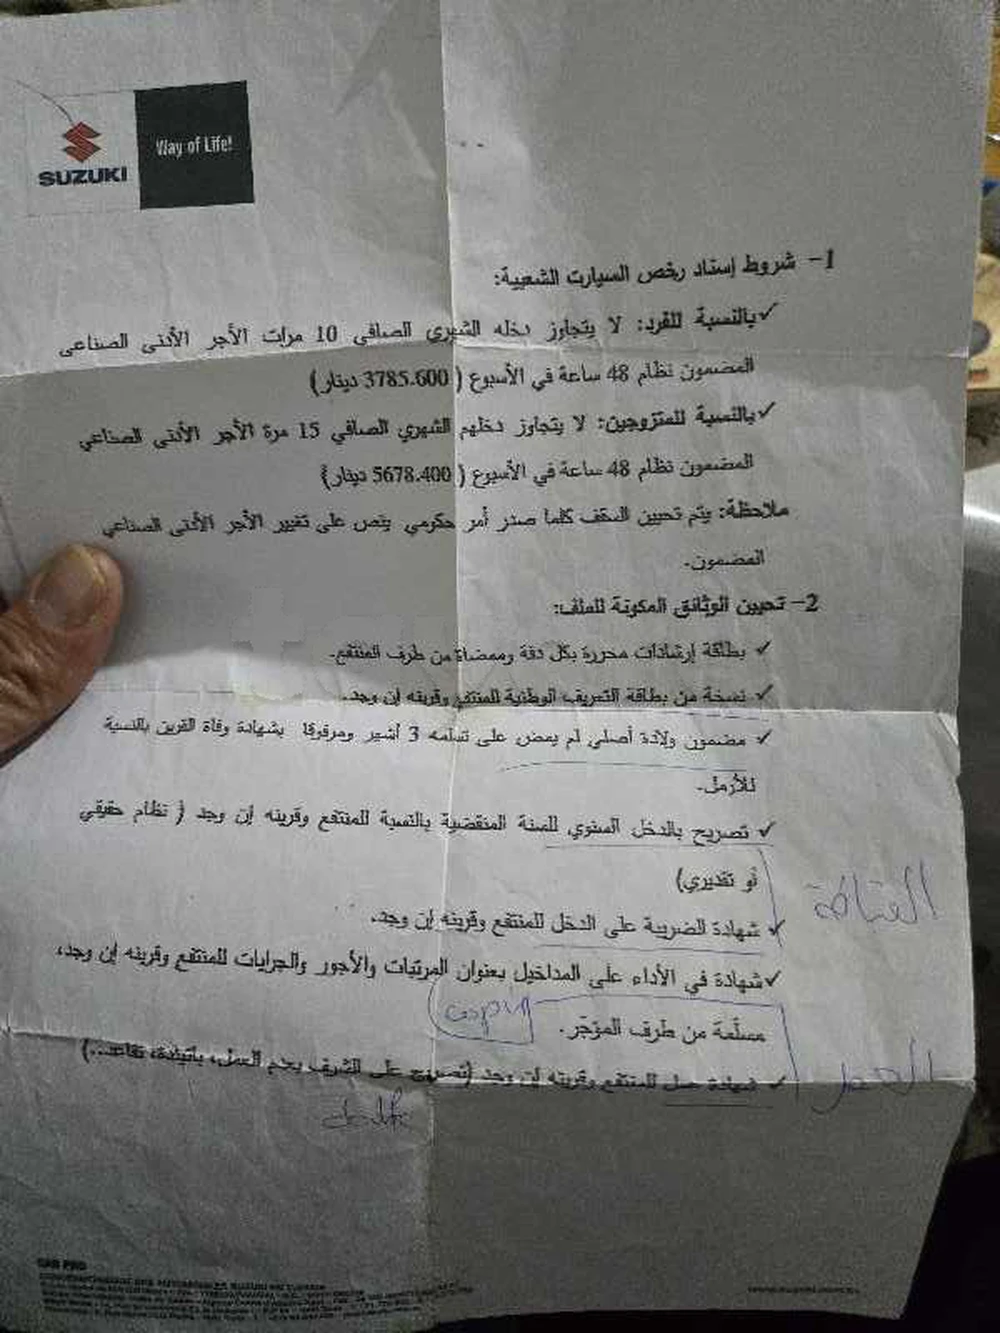 SUZUKI
Way of Life!
1- شروط إسناد رخص السيارت الشعبية:
✓ بالنسبة للفرد: لا يتجاوز دخله الشهري الصافي 10 مرات الأجر الأدنى الصناعي
المضمون نظام 48 ساعة في الأسبوع ( 3785.600 دينار)
✓ بالنسبة للمتزوجين: لا يتجاوز دخلهم الشهري الصافي 15 مرة الأجر الأدنى الصناعي
المضمون نظام 48 ساعة في الأسبوع ( 5678.400 دينار)
ملاحظة: يتم تحيين السقف كلما صدر أمر حكومي ينص على تغيير الأجر الأدنى الصناعي
المضمون.
2- تحيين الوثائق المكونة للملف:
✓ بطاقة إرشادات محررة بكل دقة وممضاة من طرف المنتفع.
✓ نسخة من بطاقة التعريف الوطنية للمنتفع وقرينه إن وجد.
✓ مضمون ولادة أصلي لم يمض على تسلمه 3 أشهر ومرفوقا بشهادة وفاة القرين بالنسبة
للأرمل.
✓ تصريح بالدخل السنوي للسنة المنقضية بالنسبة للمنتفع وقرينه إن وجد ( نظام حقيقي
أو تقديري)
القباضة
✓ شهادة الضريبة على الدخل للمنتفع وقرينه إن وجد.
✓ شهادة في الأداء على المداخيل بعنوان المرتبات والأجور والجرايات للمنتفع وقرينه إن وجد،
مسلّمة من طرف المؤجّر.
copy
✓ شهادة عمل للمنتفع وقرينه إن وجد (تصريح على الشرف بعدم العمل، باتيندة، تقاعد...)
العمل
CAR PRO